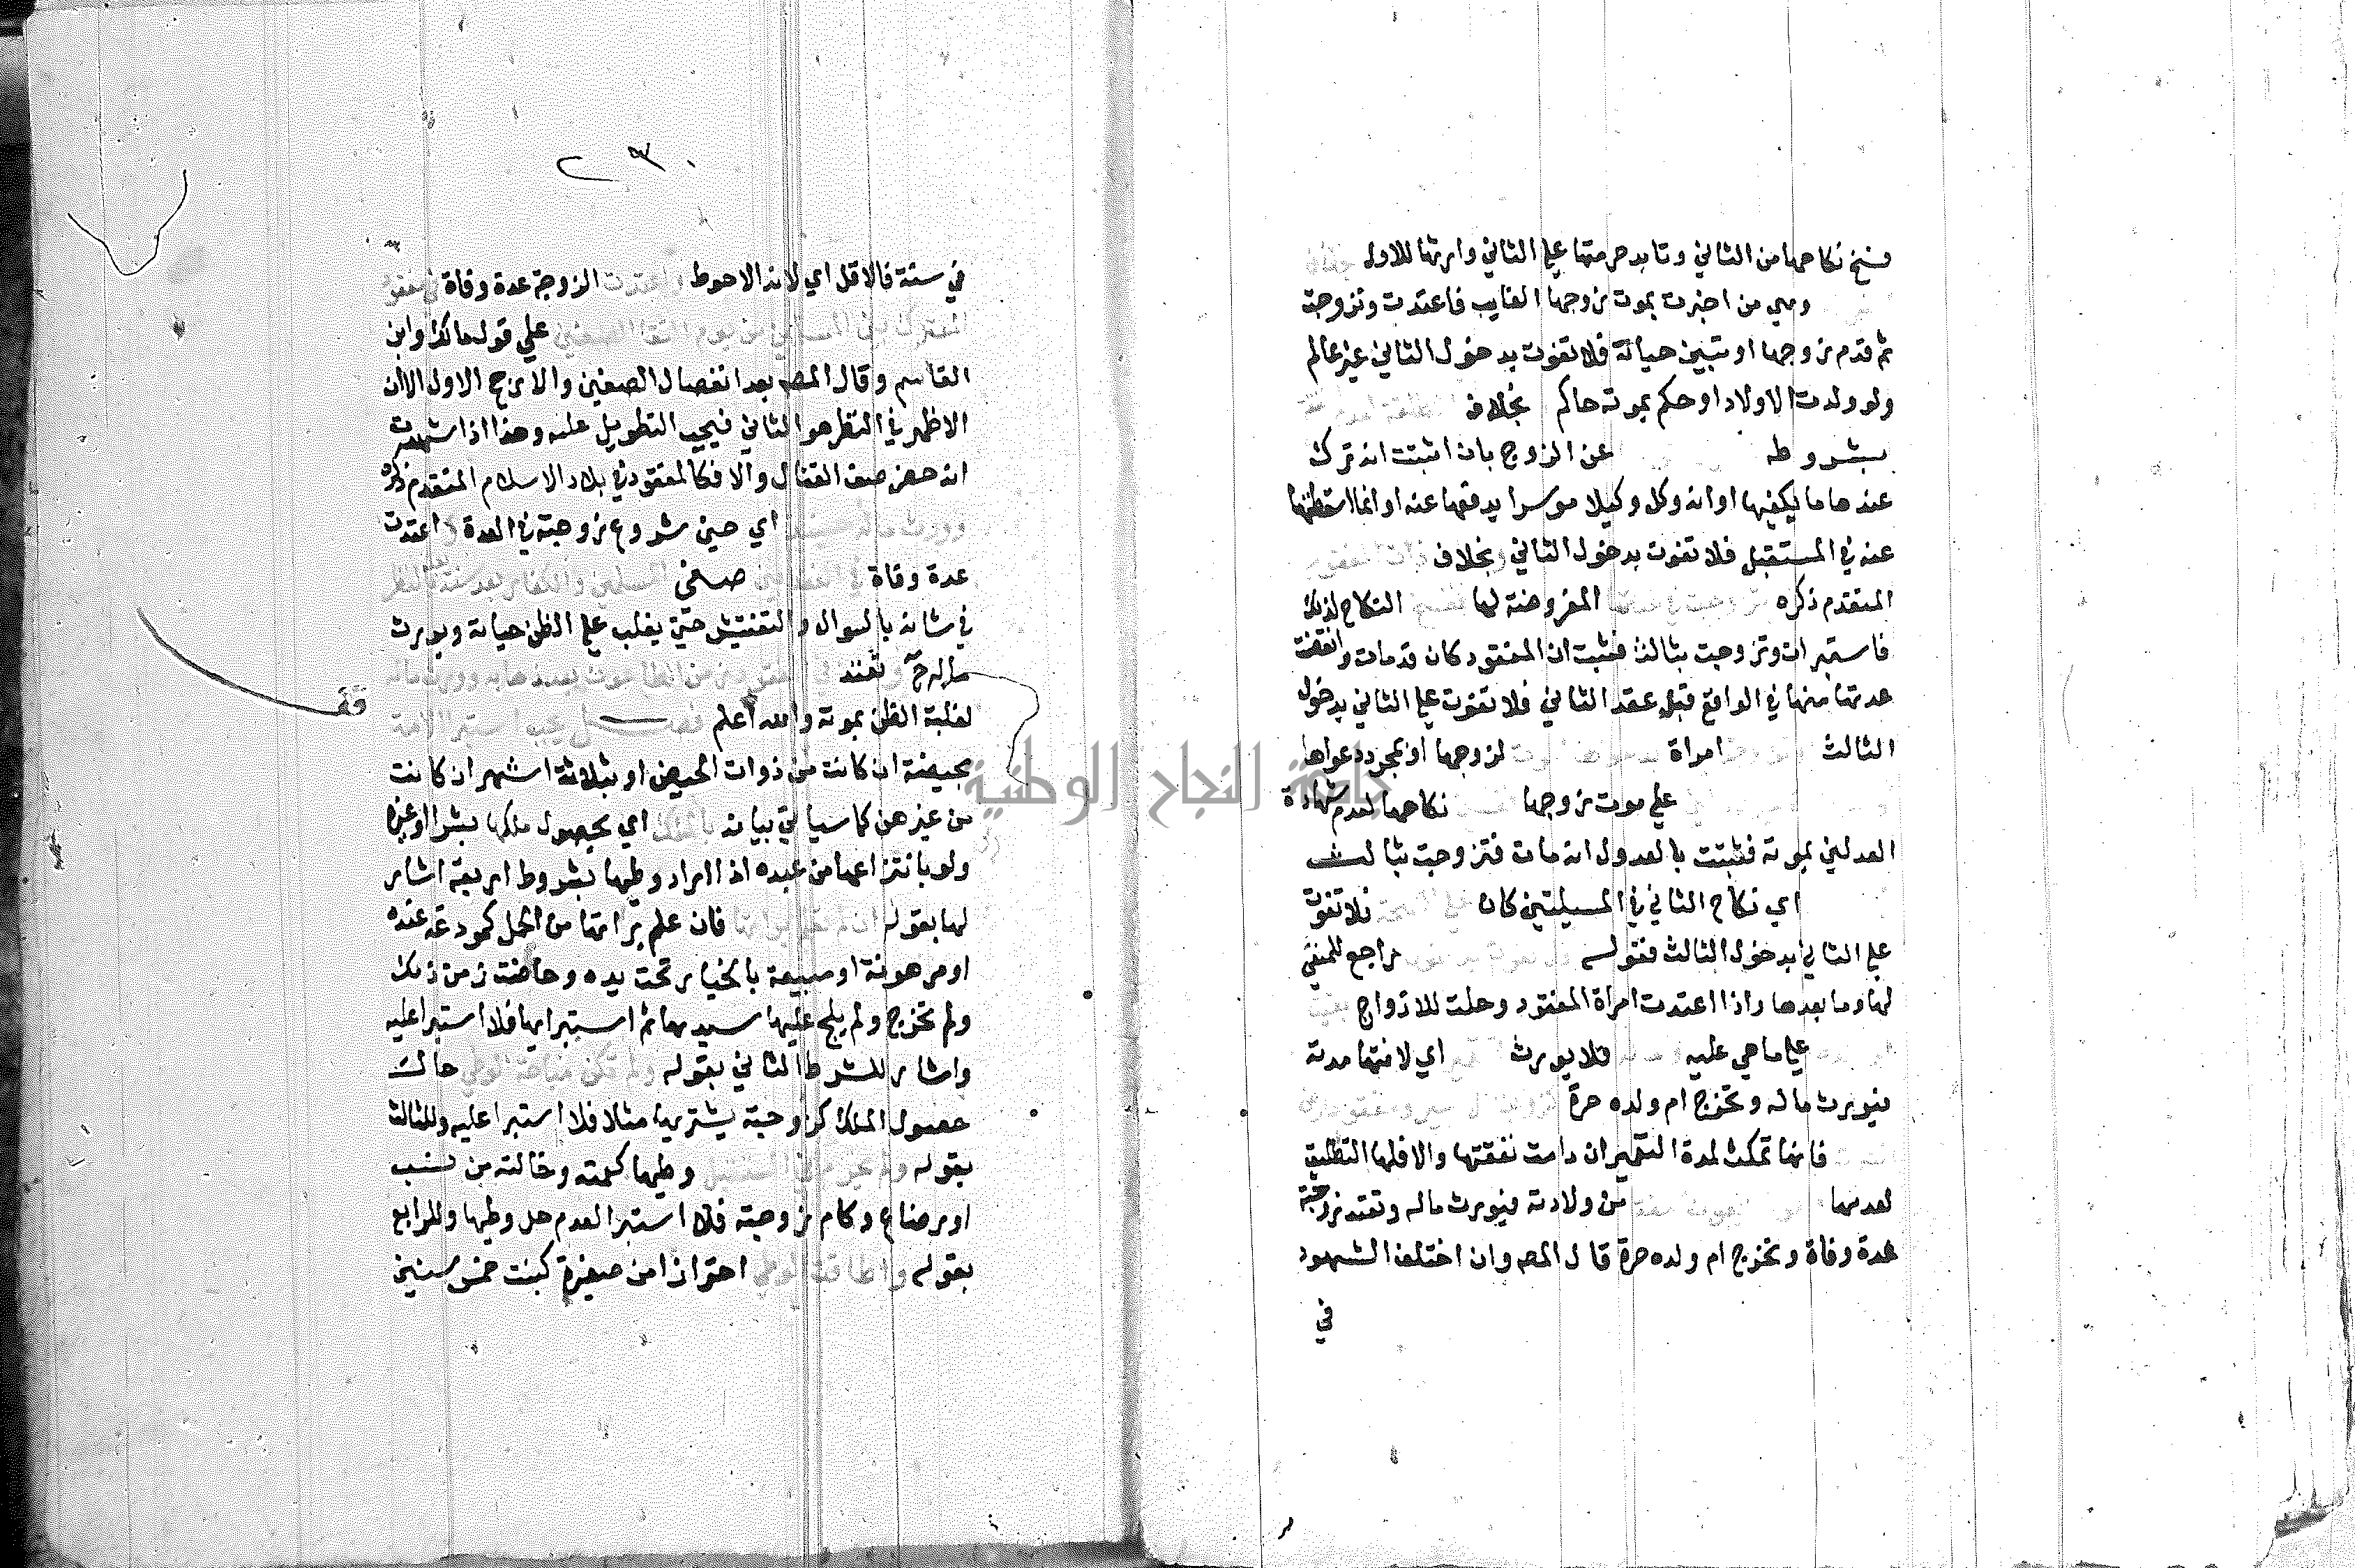 فسخ نكاحها من الثاني وتابد حرمتها علي الثاني وارثها للاول
وهي من اخبرت بموت زوجها الغايب فاعتدت وتزوجت
ثم قدم زوجها او تبين حياته فلا تفوت بدخول الثاني غير عالم
ولو ولدت الاولاد او حكم بموته حاكم بخلاف
بشروطه عن الزوج بان اثبتت انه ترك
عندها ما يكفيها او انه وكل وكيلا موسرا يدفعها عنه او انها اسقطتها
عنه في المستقبل فلا تفوت بدخول الثاني وبخلاف ذات المفقود
المتقدم ذكره المفروضة لها النكاح لذلك
فاستبرات وتزوجت بثالث فثبت ان المفقود كان قد مات وانقضت
عدتها منها في الواقع قبل عقد الثاني فلا تفوت علي الثاني بدخول
الثالث امراة لزوجها او بمجرد دعواها
علي موت زوجها نكاحها لعدم شهادة
العدلين بموته فثبتت بالعدول انه مات فتزوجت بثالث
اي نكاح الثاني في المسيلتين كان فلا تفوت
علي الثاني بدخول الثالث فقوله راجع للمنفي
لها وما بعدها واذا اعتدت امراة المفقود وحلت للازواج بقيت
علي ما هي عليه فلا يورث اي لانتها مدته
فيورث ماله وتخرج ام ولده حرة
فانها تمكث لمدة التعمير ان دامت نفقتها والا فلها التطليق
لعدمها من ولادته فيورث ماله وتعتد زوجته
عدة وفاة وتخرج ام ولده حرة قال المص وان اختلف الشهود
في
٢٣٠
في سنة فالاقل اي لانه الاحوط واعتدت الزوجة عدة وفاة في مفقود
المعترك بين المسلمين من يوم التقا الصفين علي قول مالك وابن
القاسم وقال المص بعد انفصال الصفين والارجح الاول الا ان
الاظهر في النظر هو الثاني فيجب التطويل عليه وهذا اذا شهدت
انه حضر صف القتال والا فكالمفقود في بلاد الاسلام المتقدم ذكره
وورث ماله حينئذ اي حين شروع زوجته في العدة واعتدت
عدة وفاة في صفي المسلمين والكفار بعد سنة بعد النظر
في شانه بالسوال والتفتيش حتي يغلب علي الظن حياته ويورث
ماله ح وتعتد في المفقود زمن الطاعون بعد ذهابه وورث ماله
لغلبة الظن بموته والله اعلم فصل يجب استبرا الامة
بحيضة ان كانت من ذوات الحيض او بثلاثة اشهر ان كانت
من غيرهن كما سياتي بيانه بالملك اي بحصول ملكها بشرا او غيره
ولو بانتزاعها من عبده اذا اراد وطيها بشروط اربعة اشار
لها بقوله ان لم تعلم براتها فان علم براتها من الحمل كمودعة عنده
او مرهونة او مبيعة بالخيار تحت يده وحاضت زمن ذلك
ولم تخرج ولم يلج عليها سيدها ثم استبراها فلا استبرا عليه
واشار للشرط الثاني بقوله ولم تكن مباحة الوطي حالت
حصول الملك كزوجته يشتريها مثلا فلا استبرا عليه وللثالث
بقوله ولم تحرم في المستقبل وطيها كعمته وخالته من نسب
او رضاع وكام زوجته فلا استبرا لعدم حل وطيها وللرابع
بقوله واطاقت الوطي احترازا من صغيرة كبنت خمس سنين
قف
جامعة النجاح الوطنية